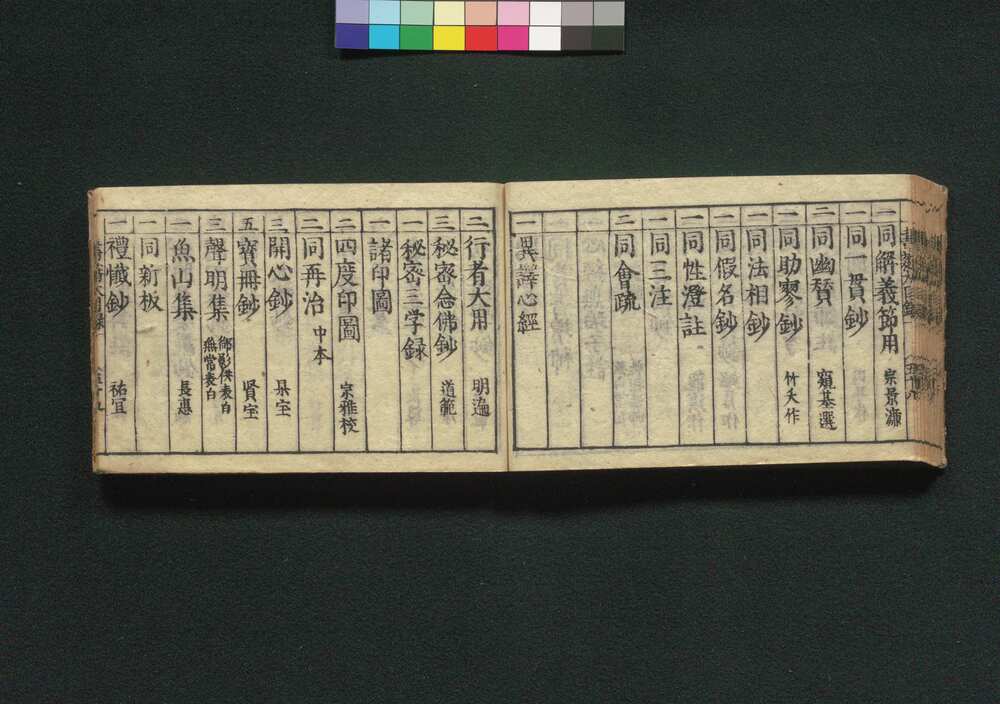 二 同解義節用 宗景濂
一 同一貫鈔
二 同幽賛 窺基選
一 同助寥鈔 竹夭作
一 同法相鈔
一 同假名鈔
一 同性澄註
一 同三注
二 同會疏
一 異譯心經
二 行者大用 明遍
三 秘密念佛鈔 道範
一 秘密三学録
一 諸印圖
二 四度印圖 宗雅校
二 同再治 中本
三 開心鈔 杲宝
五 寳冊鈔 賢宝
三 聲明集 御影供表白 無常表白
一 魚山集 長惠
一 同新板
一 禮懺鈔 祐冝